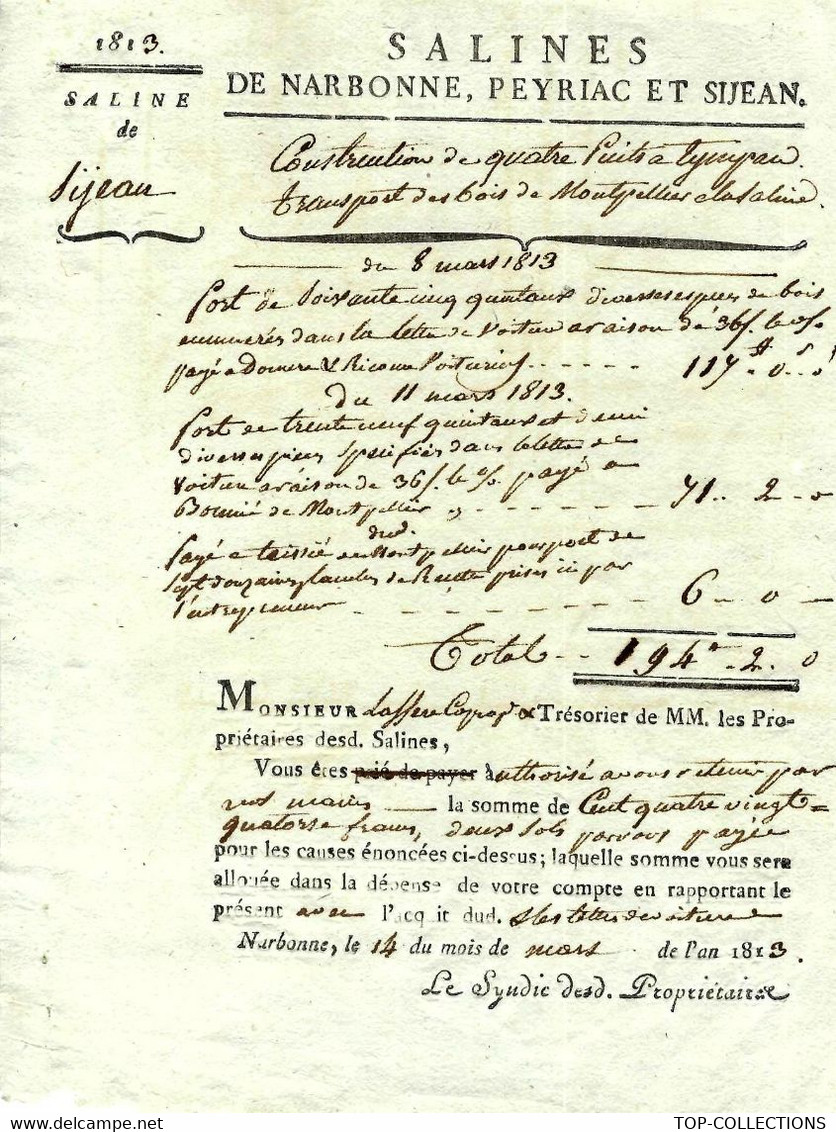 1813.
SALINE
de
Sijean
SALINES
DE NARBONNE, PEYRIAC ET SIJEAN.
Construction de quatre Puits a tympan.
transport des bois de Montpellier a la Saline.
du 8 mars 1813
Port de Soixante cinq quintaux diverses espices de bois
enumerés dans la lettre de Voiture a raison de 36 s. le %
payé a Domere & Ricome Voituriers ..... 117 ₶ 0 s 0
Du 11 mars 1813.
Port de trente neuf quintaux et demi
diverses pieces Spécifiés dans la lettre de
Voiture a raison de 36 s. le % payé a
de Montpellier ...... 71 .. 2 .. 0
dud.
Payé a de Montpellier pour port de
Sept douzaines de prises ici par
l'entrepreneur ...... 6 .. 0 —
Total .. 194 ₶ .. 2 . 0
MONSIEUR Lassere & Trésorier de MM. les Pro-
priétaires desd. Salines,
Vous êtes prié de payer authorisé a vous retenir par
vos mains — la somme de Cent quatre vingt=
quatorse francs, deux Sols par vous payée
pour les causes énoncées ci-dessus; laquelle somme vous sera
allouée dans la dépense de votre compte en rapportant le
présent avec l'acq it dud. & les lettres de voiture
Narbonne, le 14 du mois de mars de l'an 1813.
Le Syndic desd. Propriétaires
TOP-COLLECTIONS